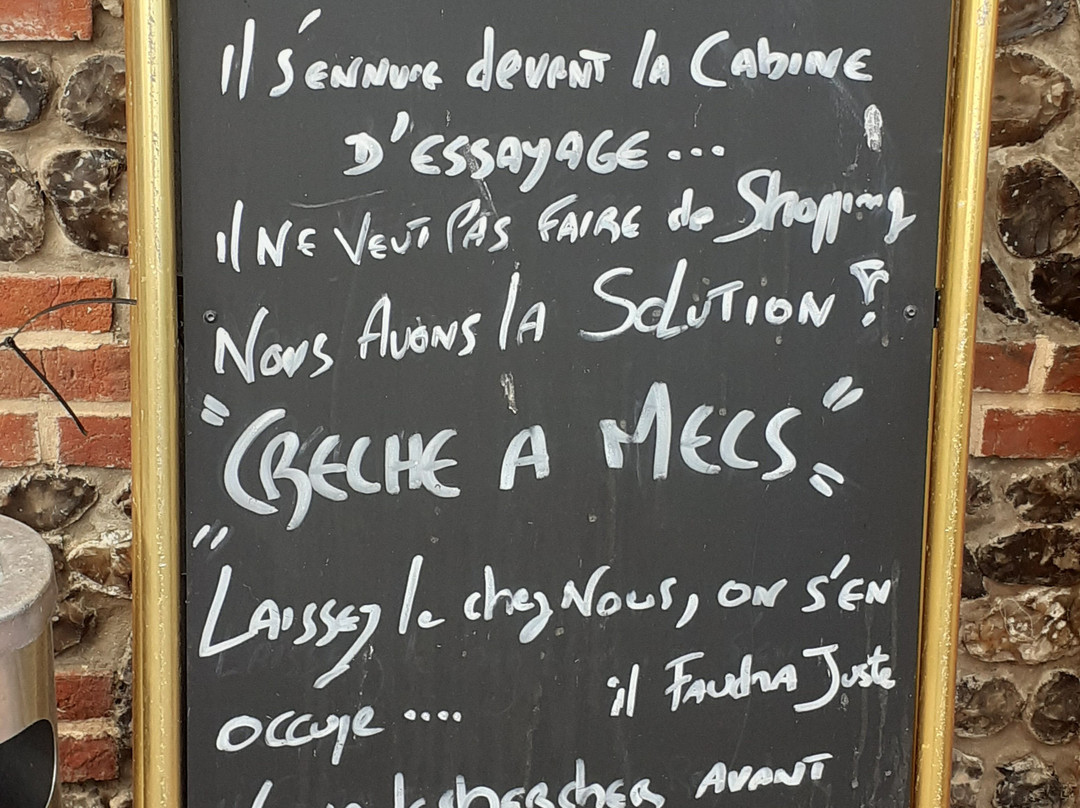 Il s'ennuie devant la Cabine
D'ESSAYAGE...
Il NE VEUT PAS FAIRE de Shopping
Nous Avons la Solution !
"CRECHE A MECS"
"Laissez le chez Nous, on s'en
occupe .... il Faudra Juste
chercher AVANT